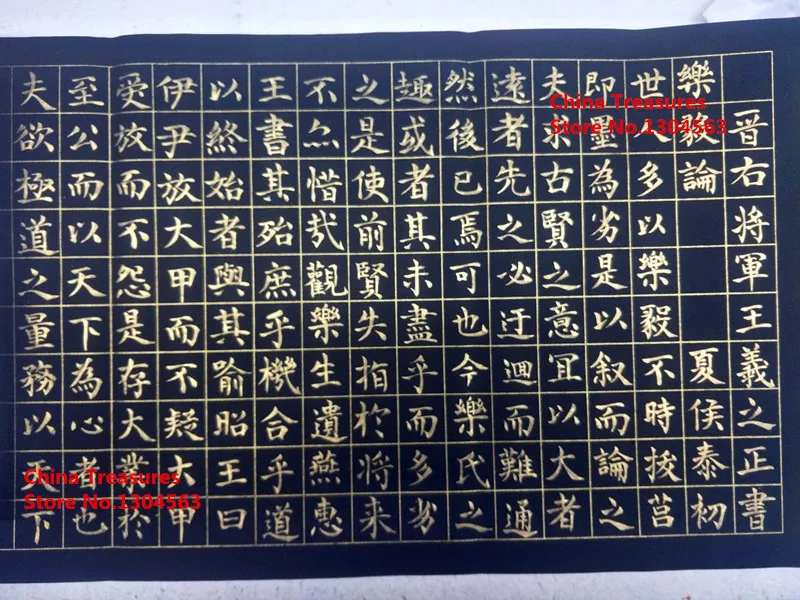 晋右将軍王義之正書
樂毅論 夏侯泰初
世人多以樂毅不時拔莒
即墨為劣是以叙而論之
夫求古賢之意宜以大者
遠者先之必迂迴而難通
然後已焉可也今樂氏之
趣或者其未盡乎而多劣
之是使前賢失指於将来
不亦惜哉觀樂生遺燕惠
王書其殆庶乎機合乎道
以終始者與其喻昭王曰
伊尹放大甲而不疑大甲
受放而不怨是存大業於
至公而以天下為心者也
夫欲極道之量務以天下
China Treasures
Store No.1304563
China Treasures
Store No.1304563